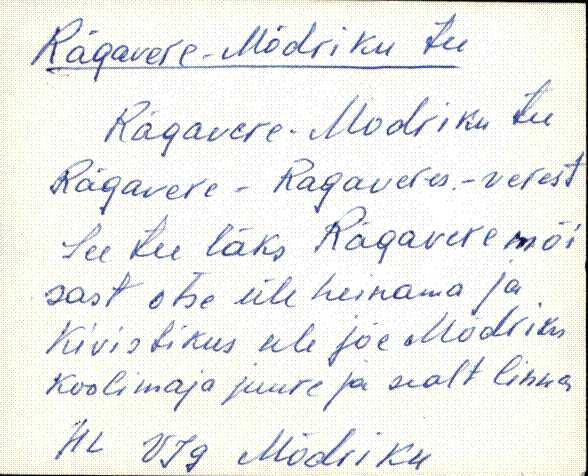 Rägavere-Mõdriku tee
Rägavere-Mõdriku tee
Rägavere - Rägaveres.-verest
See tee läks Rägavere mõi
sast otse üle heinama ja
Kivistikus üle jõe Mõdriku
Koolimaja juure ja sealt linna
HL VJg Mõdriku